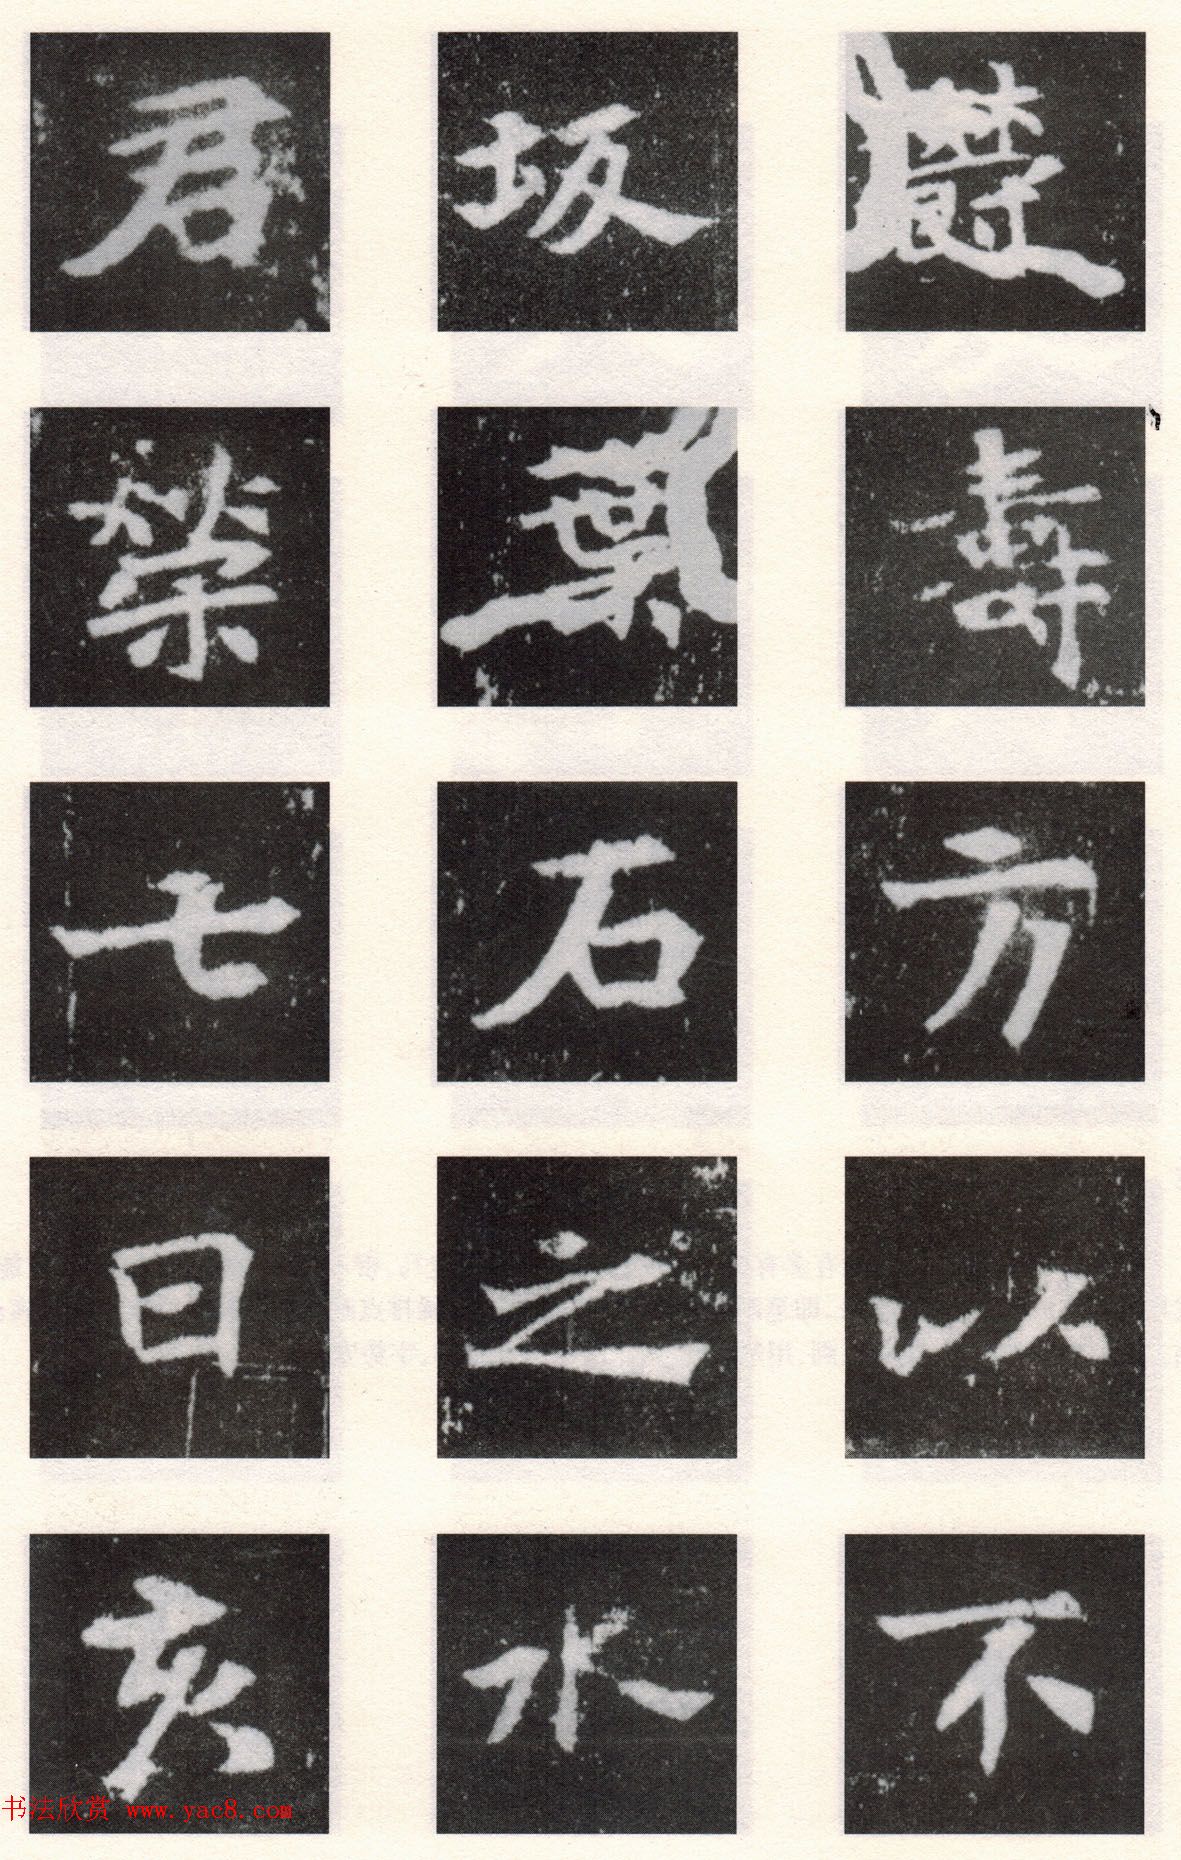 君 坂
榮 壽
七 石 方
日 之 以
亥 水 不
书法欣赏 www.yac8.com